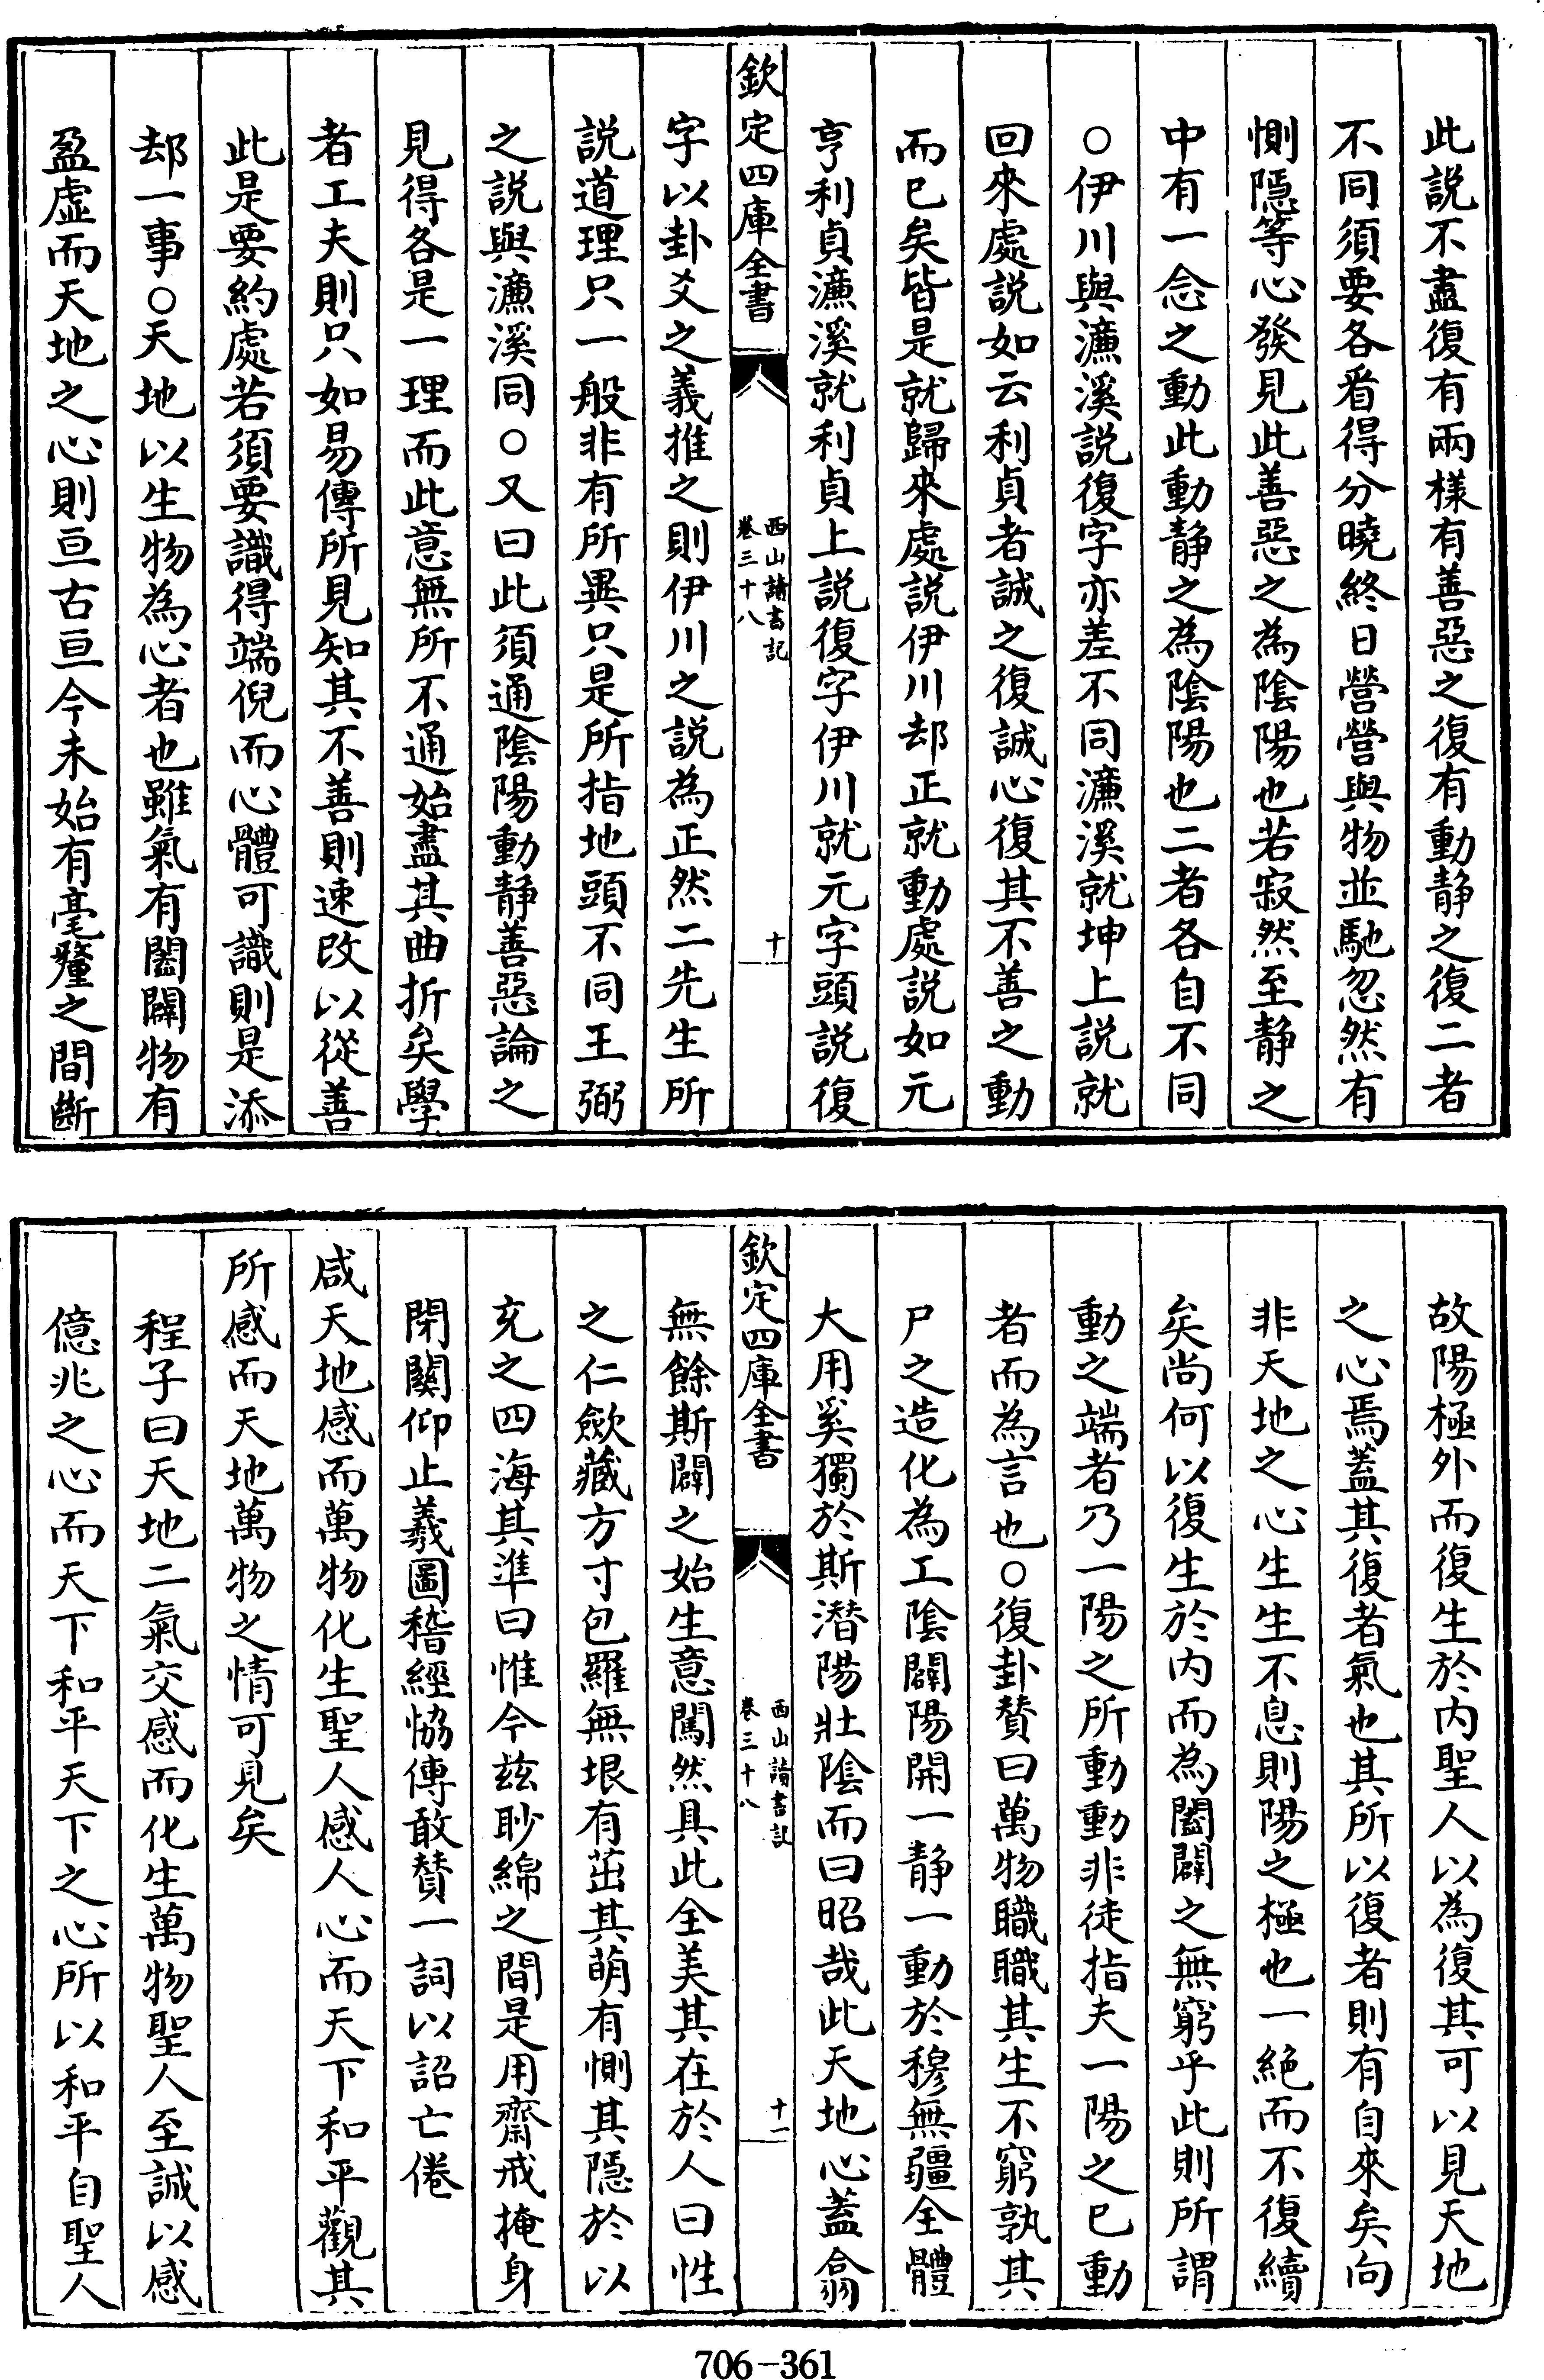 此説不盡復有兩樣有善惡之復有動静之復二者
不同須要各㸔得分曉終日營營與物並馳忽然有
惻隠等心發見此善惡之為陰陽也若寂然至静之
中有一念之動此動静之為陰陽也二者各自不同
○伊川與濂溪説復字亦差不同濂溪就坤上説就
回來處説如云利貞者誠之復誠心復其不善之動
而已矣皆是就歸來處説伊川却正就動處説如元
亨利貞濂溪就利貞上説復字伊川就元字頭説復
欽定四庫全書
西山讀書記
卷三十八
十
字以卦爻之義推之則伊川之説為正然二先生所
説道理只一般非有所異只是所指地頭不同王弼
之説與濂溪同○又曰此須通陰陽動静善惡論之
見得各是一理而此意無所不通始盡其曲折矣學
者工夫則只如易傳所見知其不善則速改以從善
此是要約處若須要識得端倪而心體可識則是添
却一事○天地以生物為心者也雖氣有闔闢物有
盈虚而天地之心則亘古亘今未始有毫釐之間斷
故陽極外而復生於内聖人以為復其可以見天地
之心焉蓋其復者氣也其所以復者則有自來矣向
非天地之心生生不息則陽之極也一絶而不復續
矣尚何以復生於内而為闔闢之無窮乎此則所謂
動之端者乃一陽之所動動非徒指夫一陽之已動
者而為言也○復卦賛曰萬物職職其生不窮孰其
尸之造化為工陰闢陽開一静一動於穆無疆全體
大用奚獨於斯潛陽壯陰而曰昭哉此天地心蓋翕
欽定四庫全書
西山讀書記
卷三十八
十一
無餘斯闢之始生意闖然具此全美其在於人曰性
之仁歛藏方寸包羅無垠有茁其萌有惻其隠於以
充之四海其準曰惟今兹眇綿之間是用齋戒掩身
閉關仰止羲圖稽經協傳敢賛一詞以詔亡倦
咸天地感而萬物化生聖人感人心而天下和平觀其
所感而天地萬物之情可見矣
程子曰天地二氣交感而化生萬物聖人至誠以感
億兆之心而天下和平天下之心所以和平自聖人
706-361